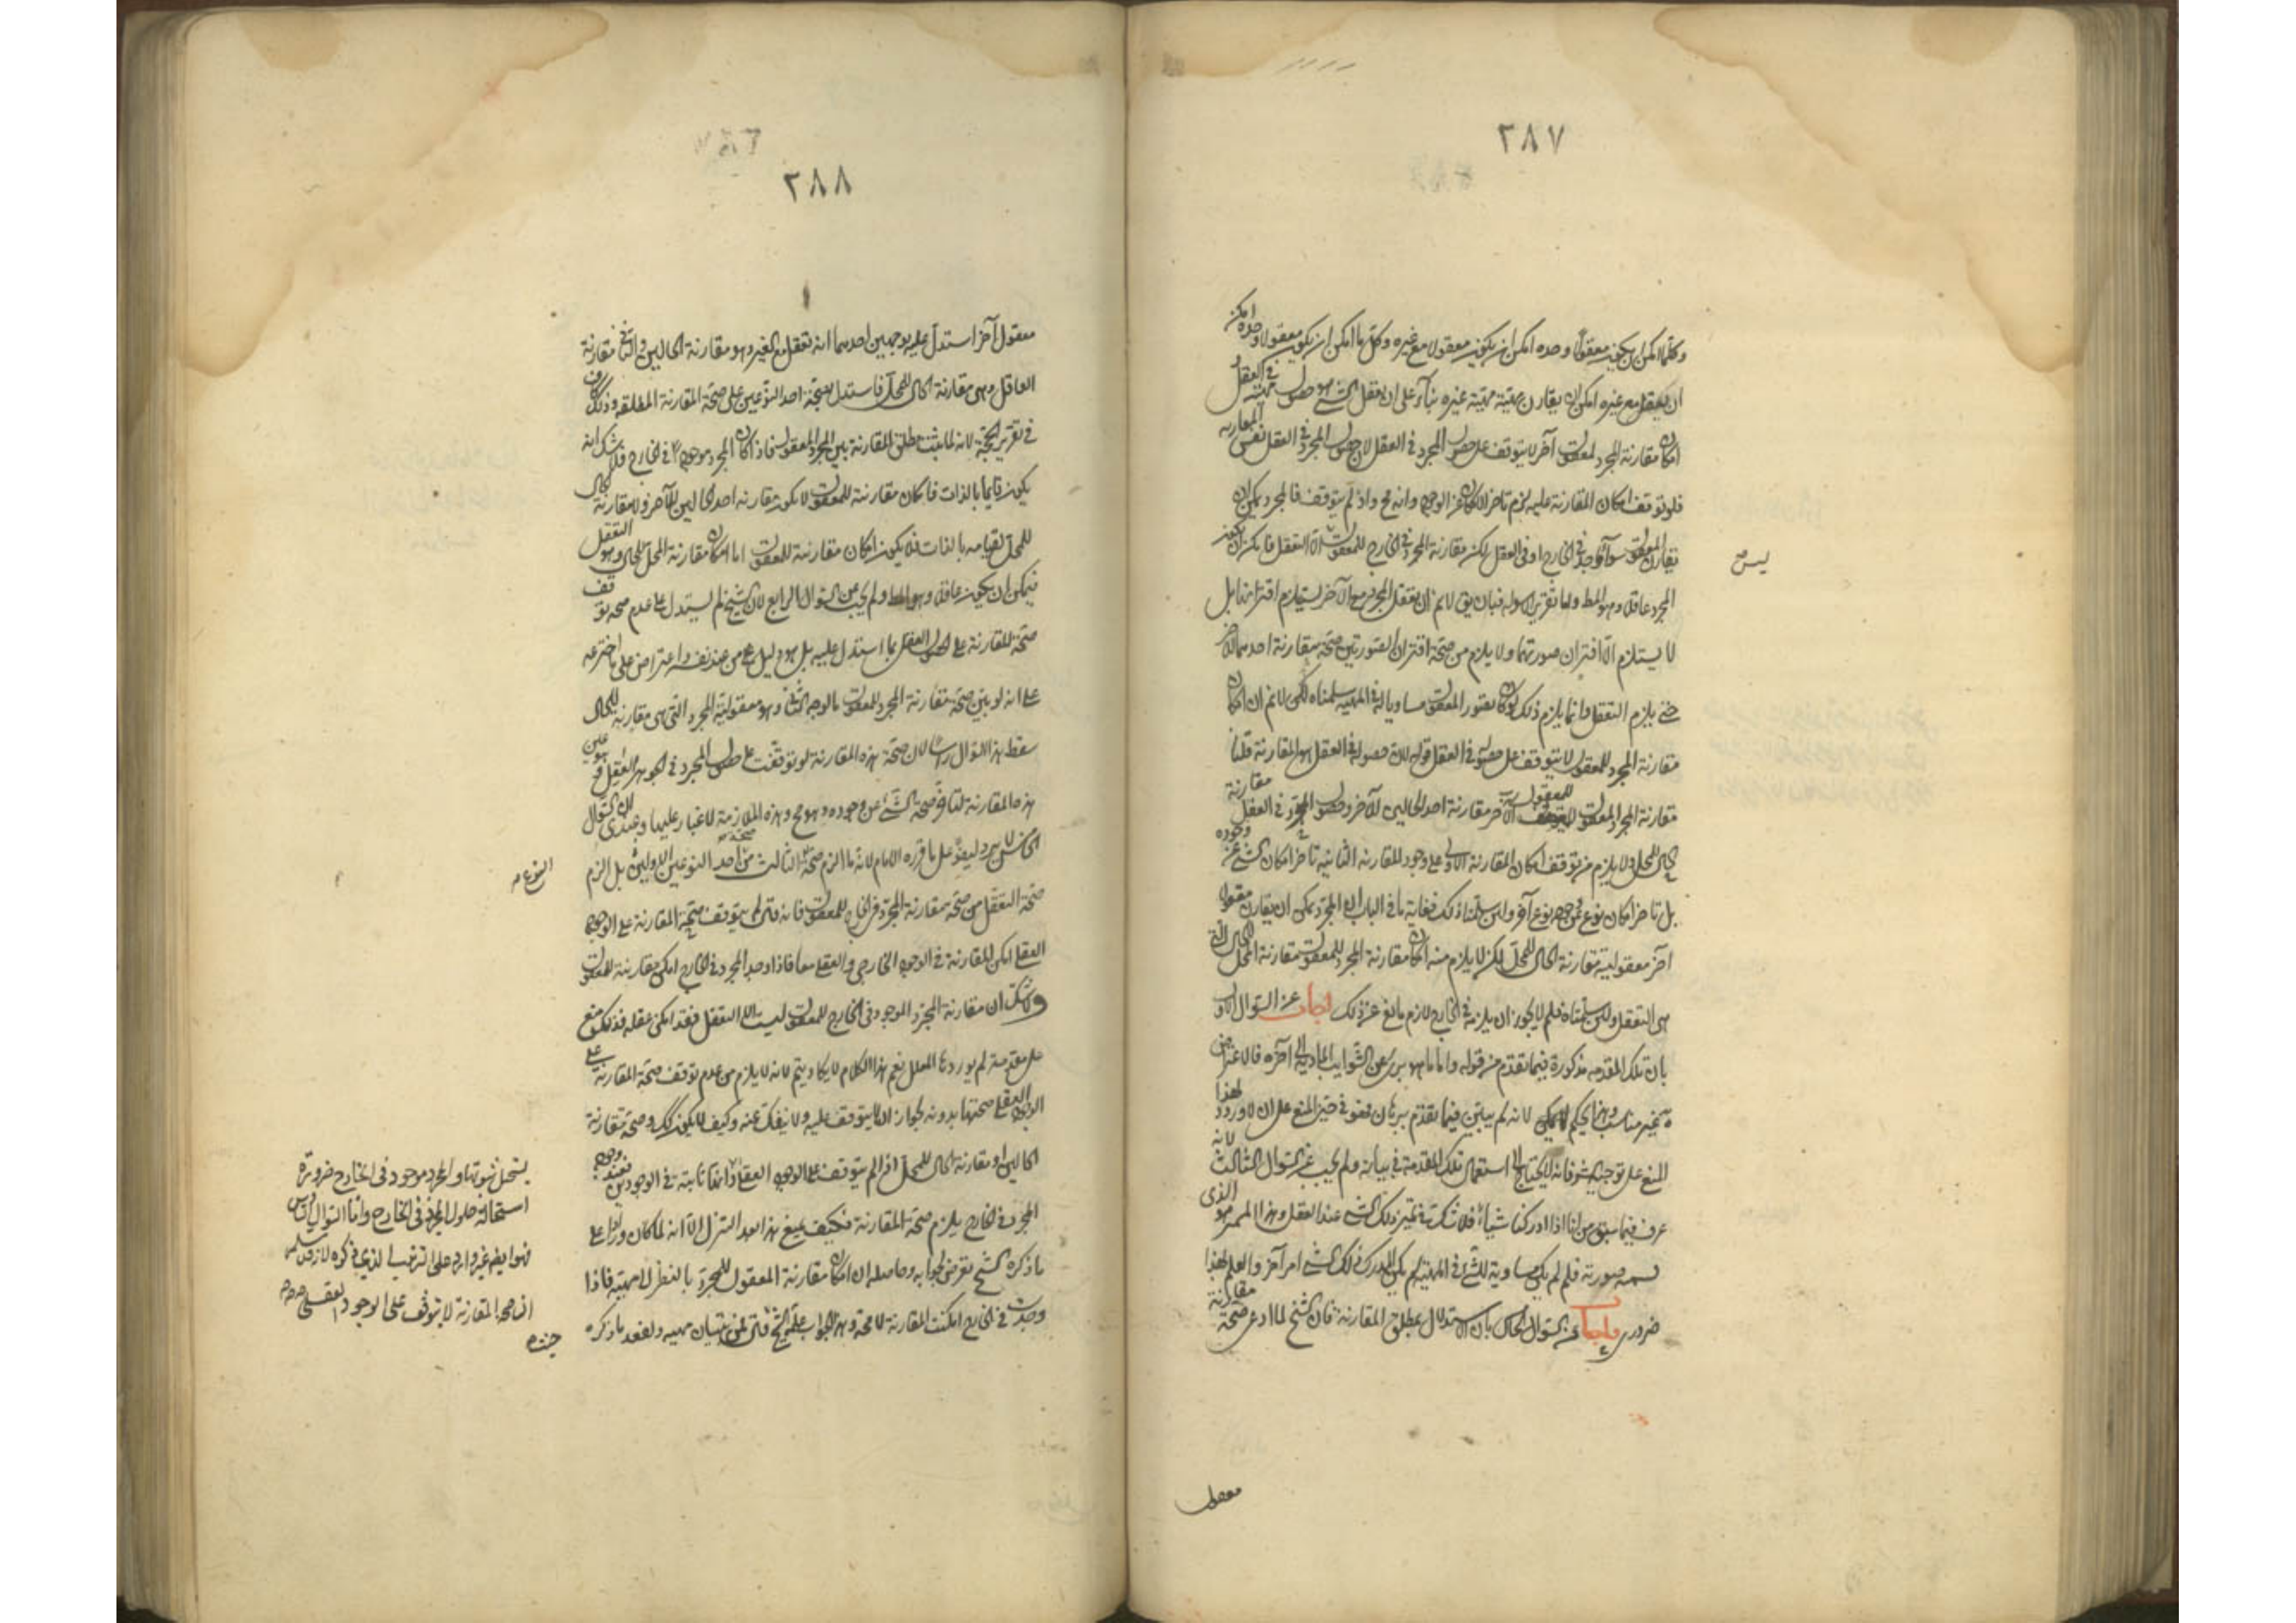 ٢٨٧
وكلما امكن ان يكون معقولا وحده امكن ان يكون معقولا مع غيره وكل ما امكن ان يكون معقولا وحده امكن
ان يعقل مع غيره امكن ان يقارن مهيته مهية غيره بناء على ان تعقل الشئ هو حصول مهيته في العقل
امكان مقارنة المجرد لمعقول آخر لا يتوقف على حصول المجرد في العقل لان حصول المجرد في العقل نفس المقارنه
فلو توقف امكان المقارنة عليه لزم تاخر الامكان عن الوجود وانه مح واذ لم يتوقف فالمجرد يمكن ان
يقارن المعقول سواء وجد في الخارج او في العقل لكن مقارنة المجرد في الخارج للمعقول الا التعقل فامكن ان يكون
ليس
المجرد عاقلا وهو المط واما تقرير الاسوله فبان يق لا نم ان تعقل المجرد مع الآخر يستلزم اقترانهما بل
لا يستلزم الا اقتران صورتهما ولا يلزم من صحة اقتران الصورتين صحة مقارنة احدهما الآخر
حتى يلزم التعقل وانما يلزم ذلك لو كان صور المعقول مساويا له في المهيه سلمناه لكن لا نم ان امكان
مقارنة المجرد للمعقول لا يتوقف على حصوله في العقل قوله لان حصوله في العقل هو المقارنة قلنا
مقارنة المجرد المعقول للمعقول الآخر مقارنة احد الحالين للآخر وحصول المجرد في العقل مقارنة
الحال للمحل ولا يلزم من توقف امكان المقارنة الاولى على وجود المقارنه الثانيه تاخر امكان الشئ عن وجوده
بل تاخر امكان نوع عن وجود نوع آخر ولئن سلمنا ذلك فغاية ما في الباب ان المجرد يمكن ان يقارن معقولا
آخر معقوليته مقارنة الحال للمحل لكن لا يلزم منه امكان مقارنة المجرد للمعقول مقارنة المحل للحال التي
هي التعقل ولئن سلمناه فلم لا يجوز ان يلزمه في الخارج لازم مانع عن ذلك اجاب عن السوال الاول
بان تلك المقدمه مذكورة فيما تقدم من قوله واما ما هو برئ عن الشوايب المادية الى آخره فالاعتراض
غير مناسب وهذا الحكم لانه لم يبين فيما تقدم ببرهان فهو في حيز المنع على ان لا ورود لهذا
المنع على توجيه الشيخ فانه لا يحتاج الى استعمال تلك المقدمة في بيانه ولم يجب عن السوال الثالث لانه
عرف فيما سبق من انا اذا ادركنا شيئا فلا شك في تميز ذلك الشئ عند العقل وهذا المميز هو الذى
نسميه صورته فلو لم يكن مساوية للشئ في المهية لم يكن المدرك ذلك الشئ امر آخر والعلم بهذا
ضرورى واجاب عن السوال الخامس بان الاستدلال بمطلق المقارنة فان الشيخ لما ادعى صحة مقارنة
معقول
٢٨٨
معقول آخر استدل عليه بوجهين احدهما انه تعقل مع الغير وهو مقارنة الحالين والثانى مقارنة
العاقل وهى مقارنة الحال للمحل فاستدل بصحة احد النوعين على صحة المقارنة المطلقه وذلك كاف
في تقرير الحجة لانه لما ثبت مطلق المقارنة بين المجرد والمعقول فاذا كان المجرد موجودا في الخارج فلا شك انه
يكون قايما بالذات فامكان مقارنته للمعقول لا يكون مقارنه احد الحالين للآخر ولا مقارنة الحال
للمحل لقيامه بالذات فلا يكون امكان مقارنته للمعقول اما امكان مقارنة المحل للحال وهو التعقل
فيمكن ان يكون عاقلا وهو المط ولم يجب عن السوال الرابع لان الشيخ لم يستدل على عدم صحة توقف
صحة المقارنة على الحصول العقل بما استدل عليه بل هو دليل من عند نفسه واعتراض على ما اخترعه
على انه لو بين صحة مقارنة المجرد للمعقول بالوجه الثانى وهو معقولية المجرد التى هى مقارنه للحال
سقط هذا السوال راسا لان صحة هذه المقارنة لو توقفت على حصول المجرد في الجوهر العقلى وهو عين
هذه المقارنة لتاخر صحة الشئ عن وجوده وهو مح وهذه الملازمة لا غبار عليها وعندى ان السوال
الخامس لا يرد ليدفع على ما قرره الامام لانه ما الزم صحة الثالث من احد النوعين الاولين بل الزم
النوع
صحة التعقل من صحة مقارنة المجرد في الخارج للمعقول فانه متى لم يتوقف صحة المقارنة على الوجود
العقلى امكن المقارنة في الوجود الخارجى والعقلى معا فاذا وجد المجرد في الخارج امكن مقارنته للمعقول
ولا شك ان مقارنة المجرد الموجود في الخارج للمعقول ليست الا التعقل فقد امكن عقله فذلك منع
على مقدمة لم يوردها المعلل نعم هذا الكلام لا يكاد يتم لانه لا يلزم من عدم توقف صحة المقارنة على
الوجود العقلى صحتها بدونه لجواز ان لا يتوقف عليه ولا ينفك عنه وكيف لا يكون كذلك وصحة مقارنة
الحالين او مقارنة الحال للمحل اذا لم يتوقف على الوجود العقلى وانها ثابتة في الوجودين فعند وجود
المجرد في الخارج يلزم صحة المقارنة فكيف يمنع هذا بعد التنزل الا انه لما كان واردا على
ما ذكره الشيخ تعرض لجوابه وحاصله ان امكان مقارنة المعقول للمجرد بالنظر الى مهيته فاذا
وجدت في الخارج امكنت المقارنة لا محة وهذا الجواب
يستحيل ثبوتها والمجرد موجود في الخارج ضرورة
استحالة حلول المجرد في الخارج واما السوال الخامس
فهو ايضا غير وارد على الترتيب الذى ذكره لانه قد سلم
ان صحة المقارنة لا يتوقف على الوجود العقلى